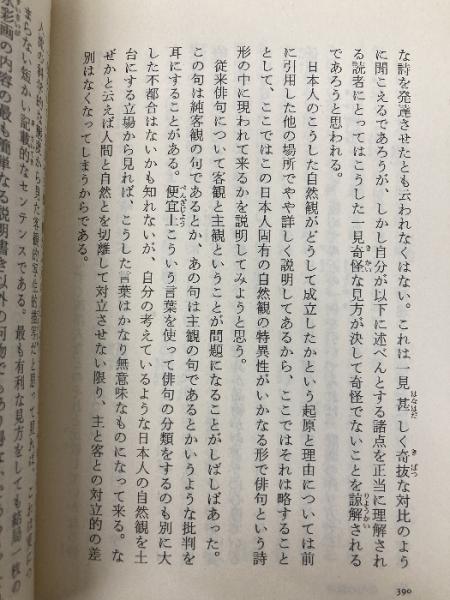 な詩を発達させたとも云われなくはない。これは一見甚しく奇抜な対比のよう
に聞こえるであろうが、しかし自分が以下に述べんとする諸点を正当に理解され
る読者にとってはこうした一見奇怪な見方が決して奇怪でないことを諒解される
であろうと思われる。
日本人のこうした自然観がどうして成立したかという起原と理由については前
に引用した他の場所でやや詳しく説明してあるから、ここではそれは略すること
として、ここではこの日本人固有の自然観の特異性がいかなる形で俳句という詩
形の中に現われて来るかを説明してみようと思う。
従来俳句について客観と主観ということが問題になることがしばしばあった。
この句は純客観の句であるとか、あの句は主観の句であるとかいうような批判を
耳にすることがある。便宜上こういう言葉を使って俳句の分類をするのも別に大
した不都合はないかも知れないが、自分の考えているような日本人の自然観を土
台にする立場から見れば、こうした言葉はかなり無意味なものになって来る。な
ぜかと云えば人間と自然とを切離して対立させない限り、主と客との対立的の差
別はなくなってしまうからである。
まらない短かい記載的なセンテンスである。最も有利な見方をしても結局一枚の
水彩画の内容の最も簡単なる説明書き以外の何物でもあり得ない
390